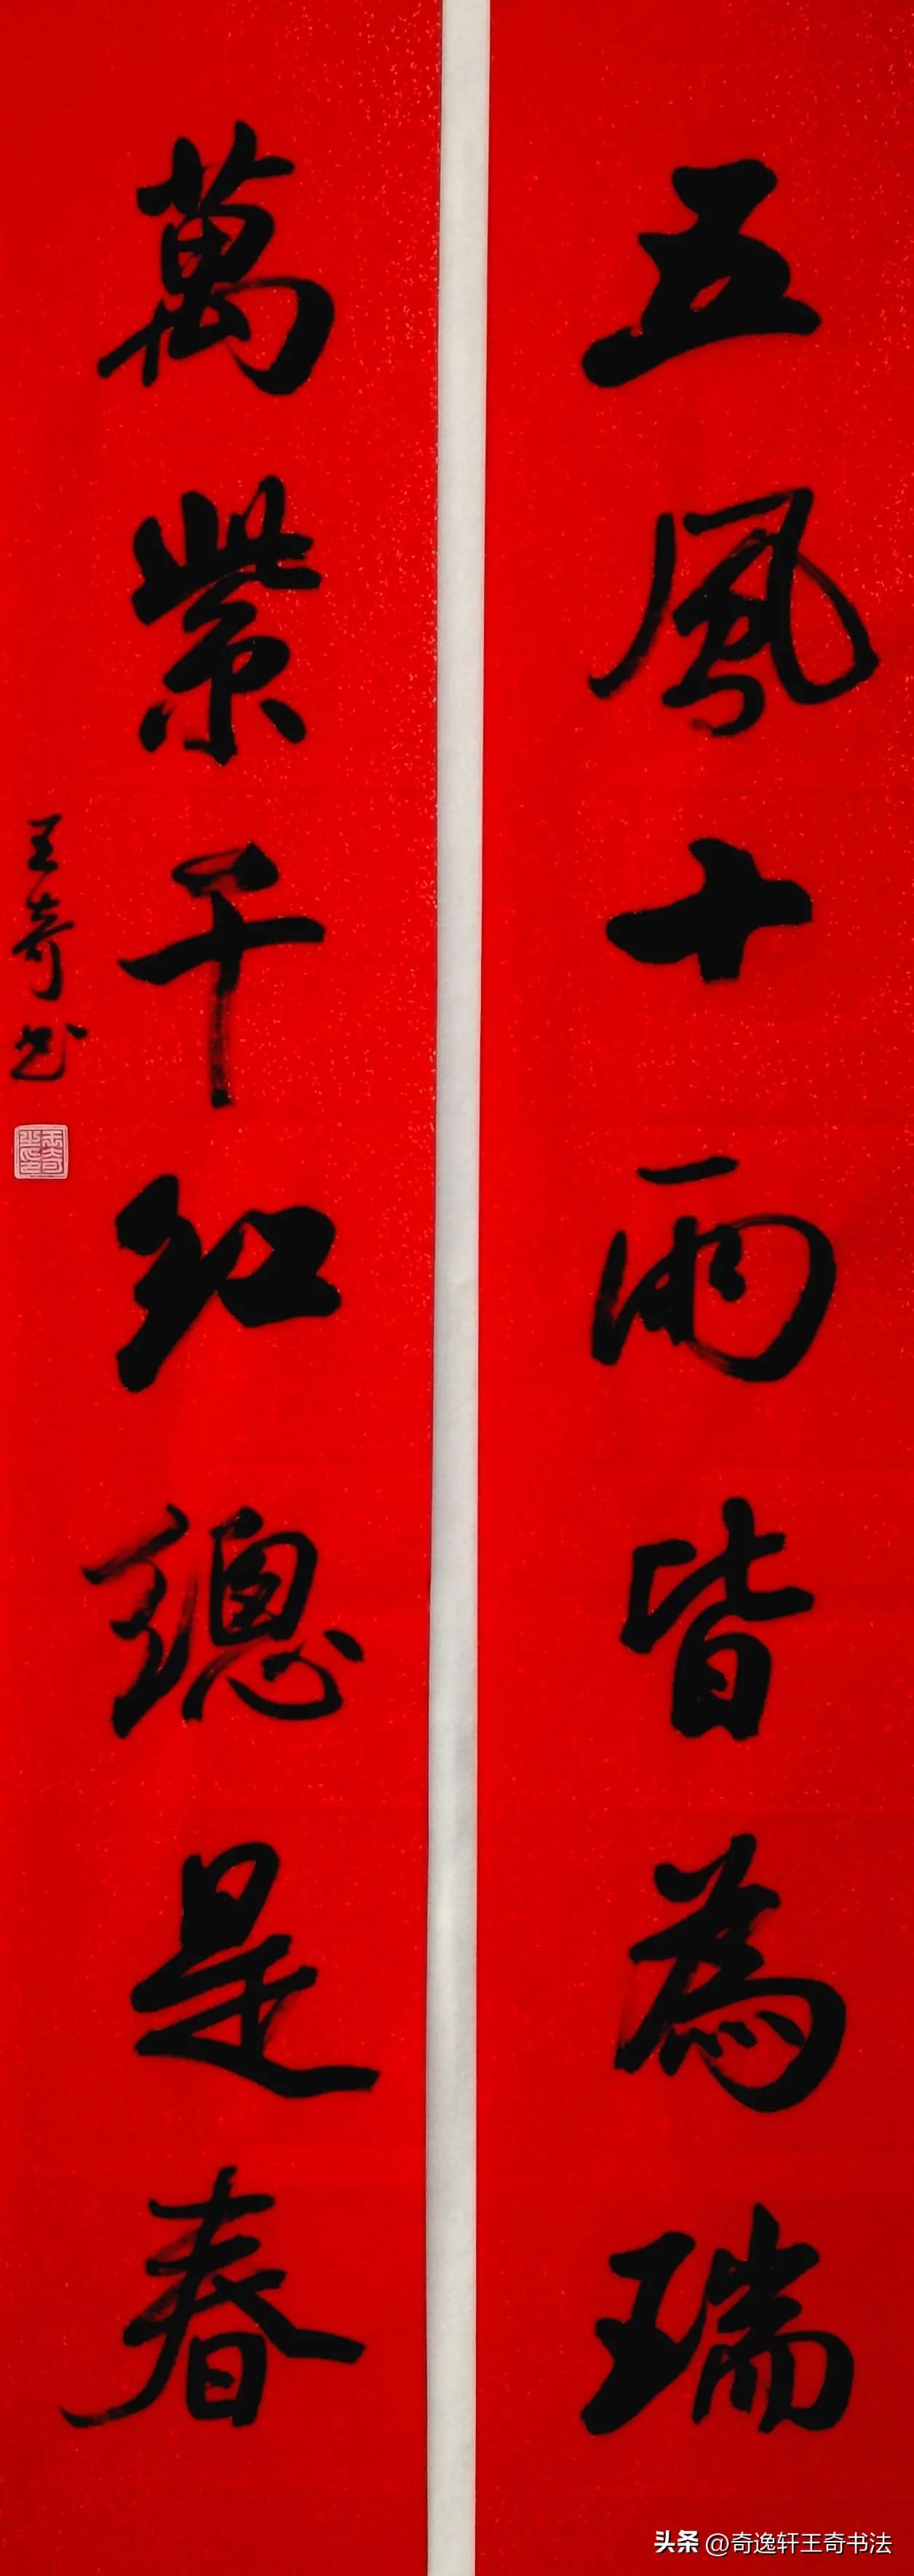 五風十雨皆為瑞
萬紫千紅總是春
王奇书
头条 @奇逸轩王奇书法